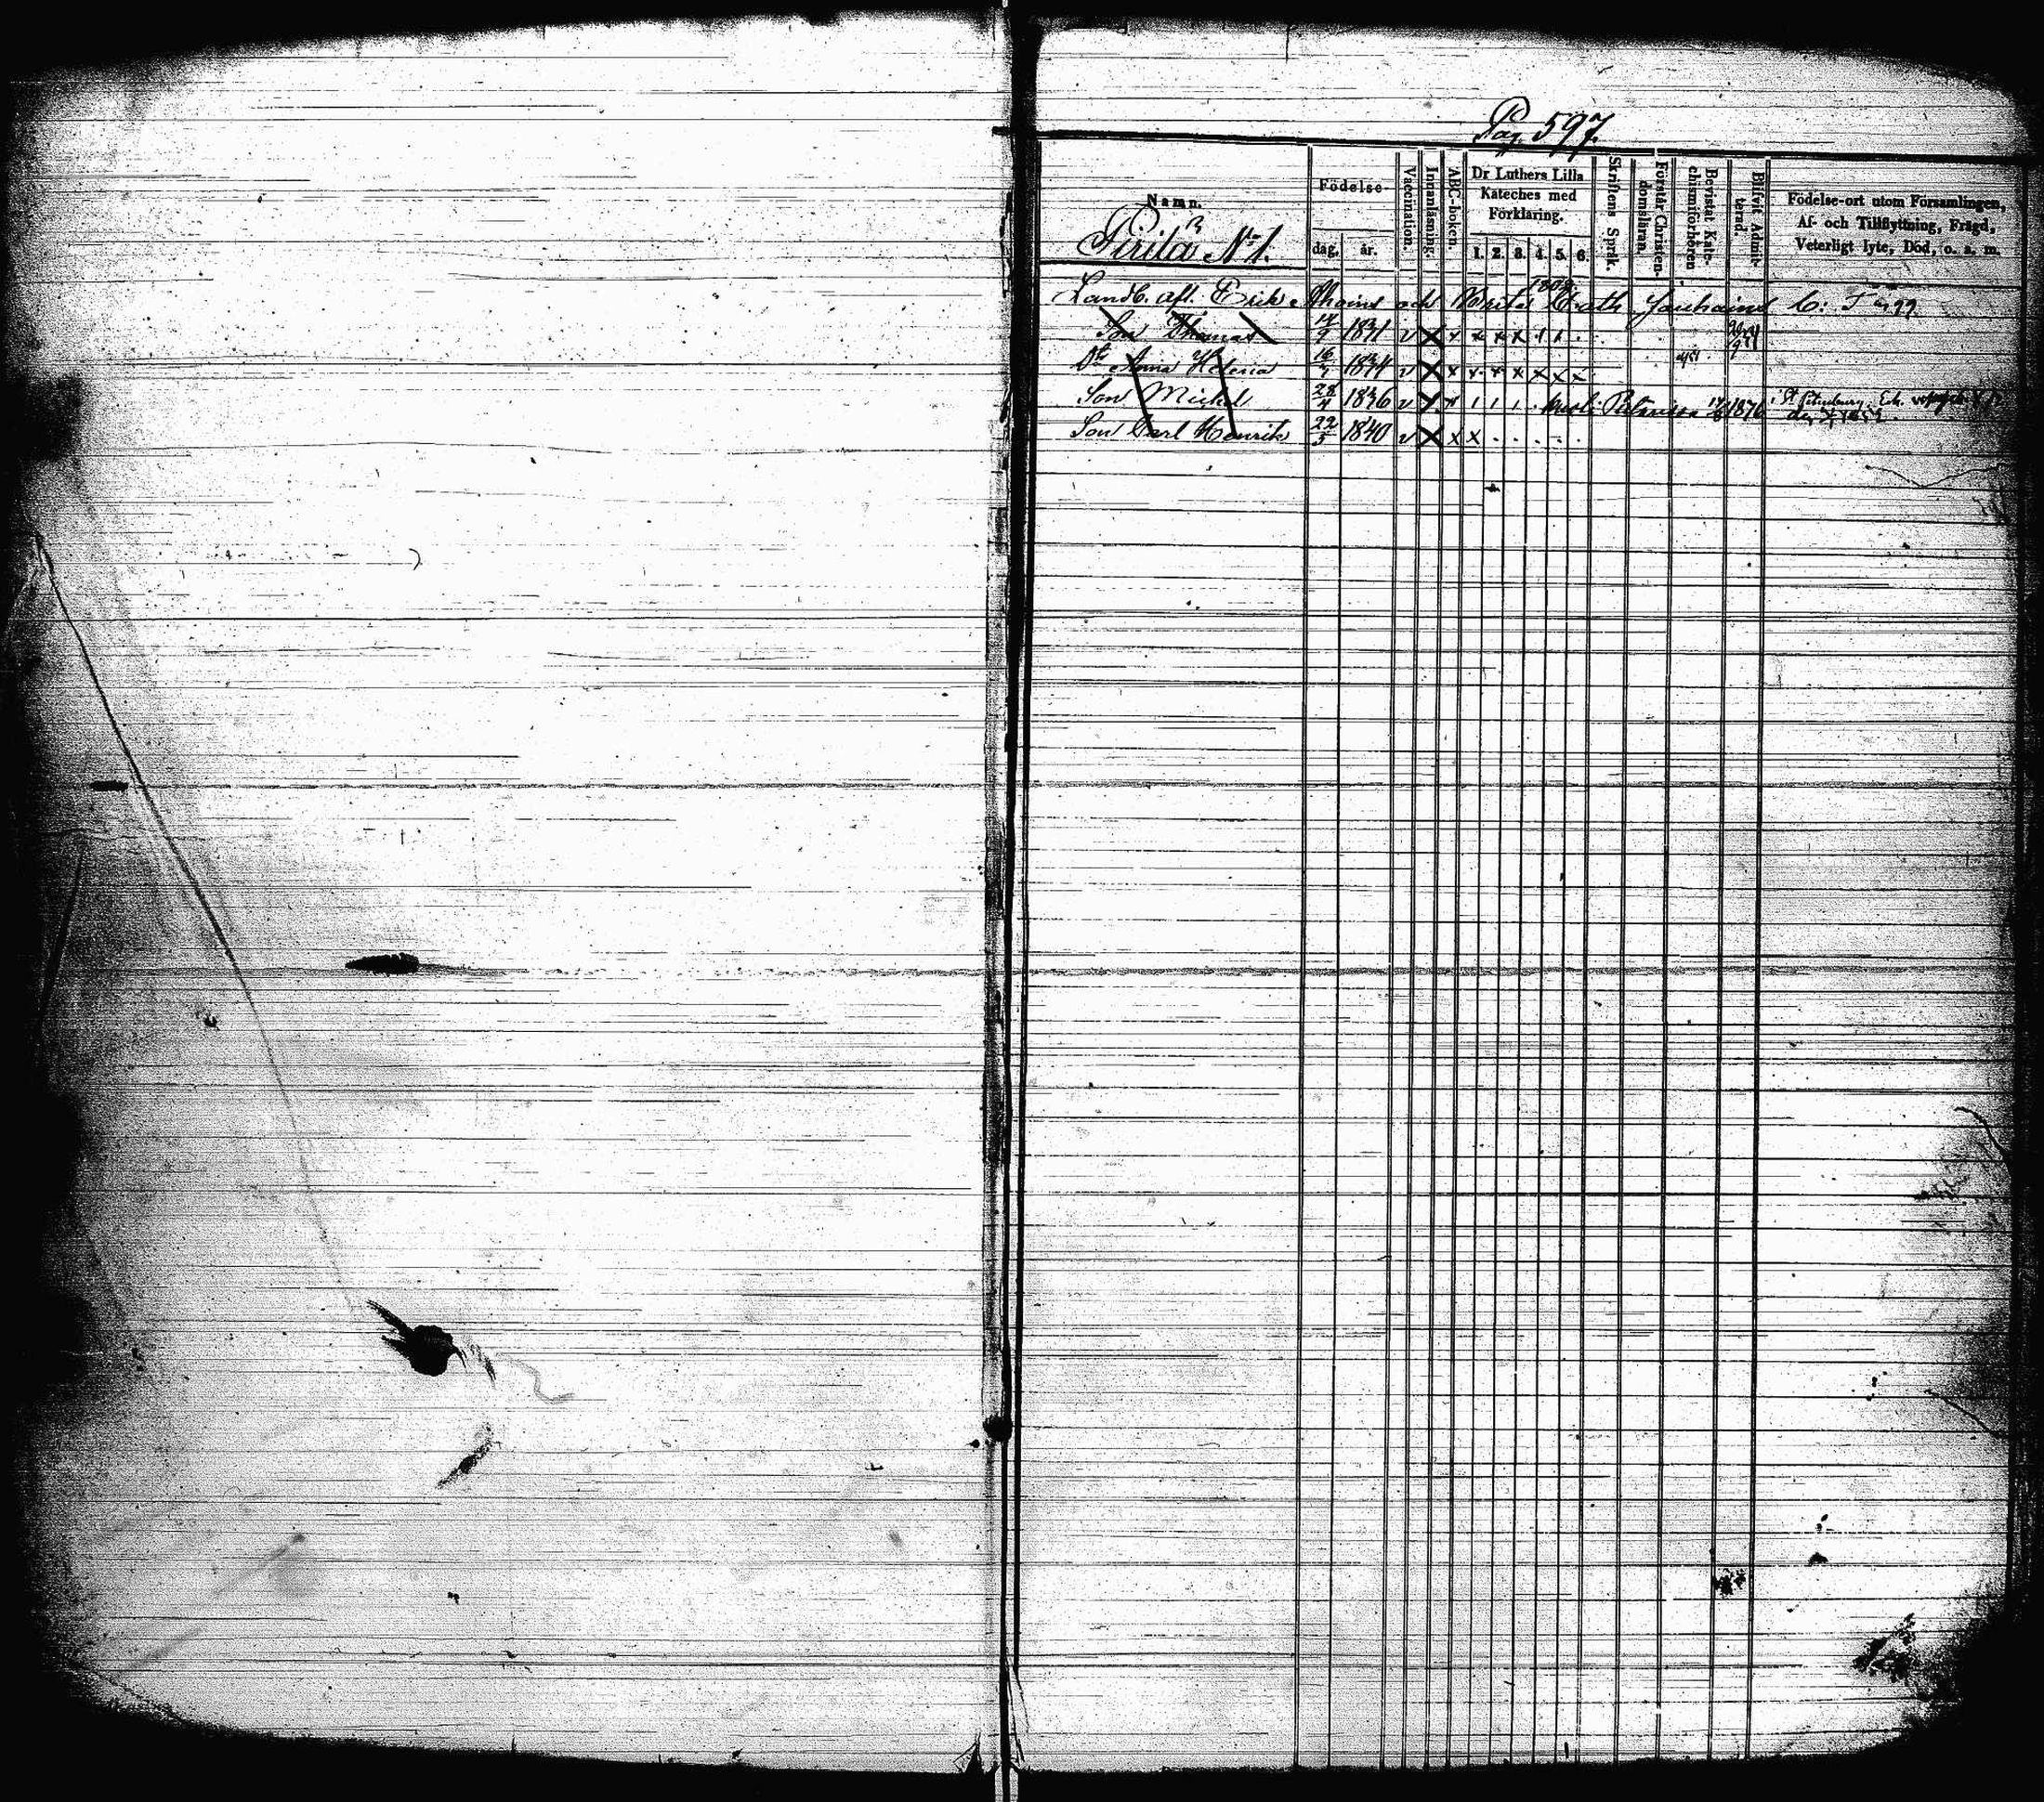 Pag. 597.
Namn.
Födelse-
dag.
år.
Vaccination.
Innanläsning.
ABC-boken.
Dr Luthers Lilla
Kateches med
Förklaring.
1. 2. 3. 4. 5. 6.
Skriftens Språk.
Förstår Christen-
domsläran.
Bevistat Kate-
chismiförhören
Blifvit Admit-
terad.
Födelse-ort utom Församlingen,
Af- och Tillflyttning, Frägd,
Veterligt lyte, Död, o. a. m.
Pirilä No 1.
Landb. afl. Erik och Brita
Son Thomas 17/9 1831 v x x x x x
Dr Anna Helena 16/7 1834 v x x x x x x x x
Son Michel 28/4 1836 v x x 1876 St Petersburg
Son Carl Henrik 22/5 1840 v x x x